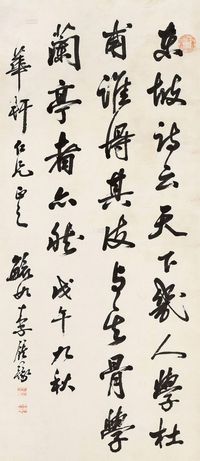 東坡詩云天下幾人學杜
甫誰得其皮与其骨學
蘭亭者亦然 戊午九秋
華軒仁兄正之 毓如李鍾豫